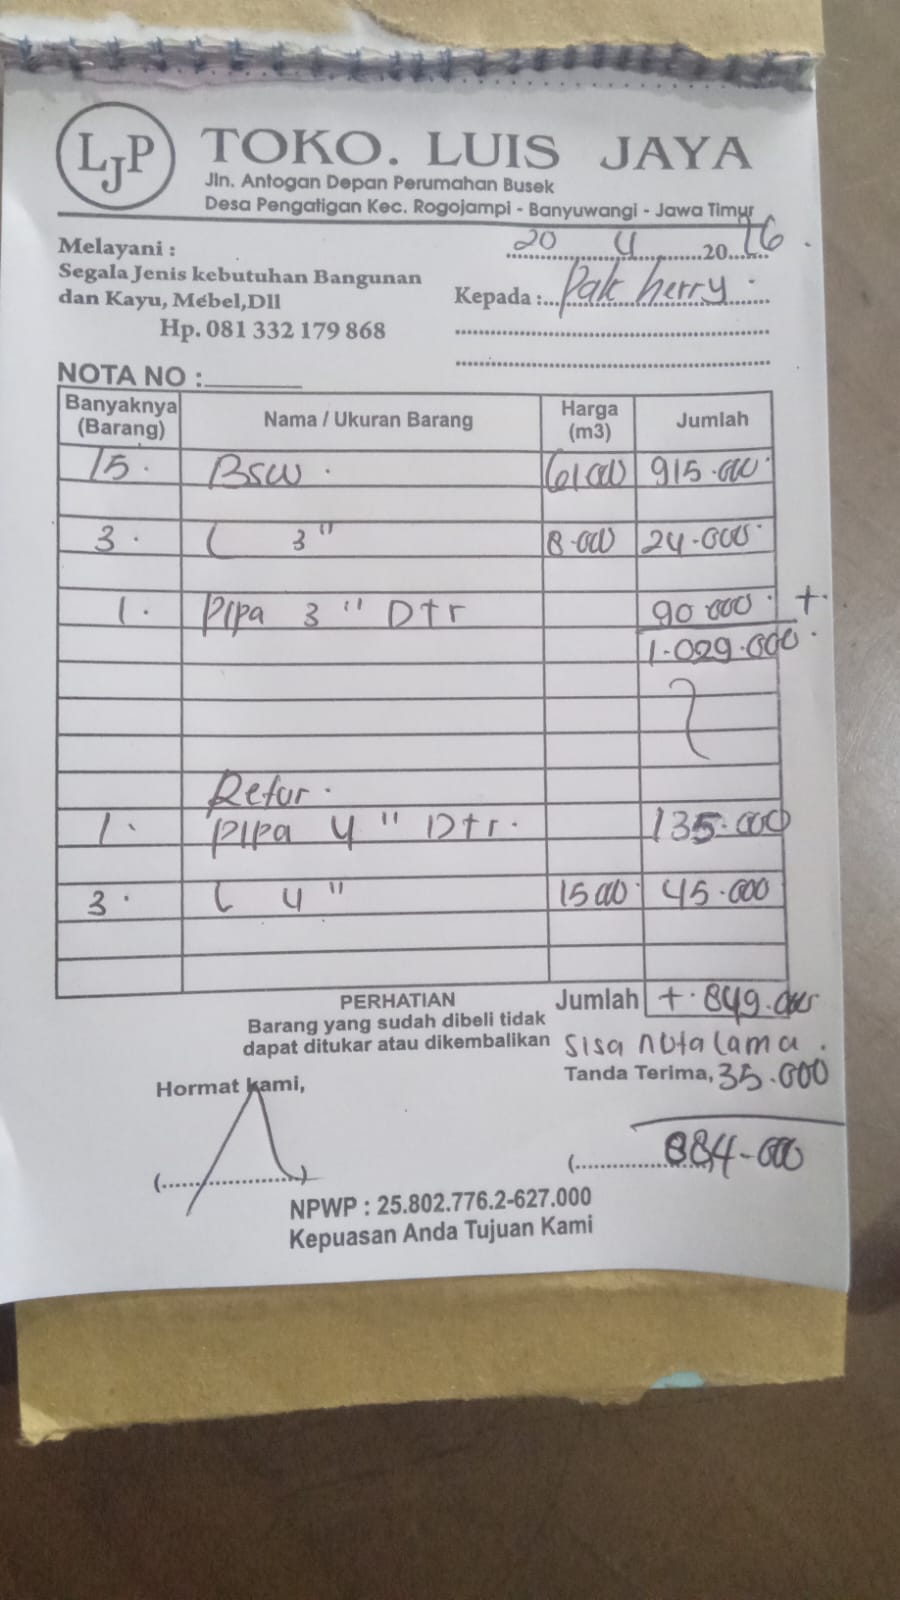 LJP
TOKO. LUIS JAYA
Jln. Antogan Depan Perumahan Busek
Desa Pengatigan Kec. Rogojampi - Banyuwangi - Jawa Timur
Melayani :
Segala Jenis kebutuhan Bangunan
dan Kayu, Mebel,Dll
Hp. 081 332 179 868
20 4 20
Kepada : Pak herry
NOTA NO :
Banyaknya (Barang) Nama / Ukuran Barang Harga (m3) Jumlah
15 BSW 61000 915.000
3 L 3" 8.000 24.000
1 PIPA 3" Dtr 90.000 +
1.029.000
Retur
1 PIPA 4" Dtr 135.000
3 L 4" 15000 45.000
PERHATIAN
Barang yang sudah dibeli tidak
dapat ditukar atau dikembalikan
Jumlah + 849.000
sisa nota lama
Hormat kami,
Tanda Terima, 35.000
884.000
NPWP : 25.802.776.2-627.000
Kepuasan Anda Tujuan Kami